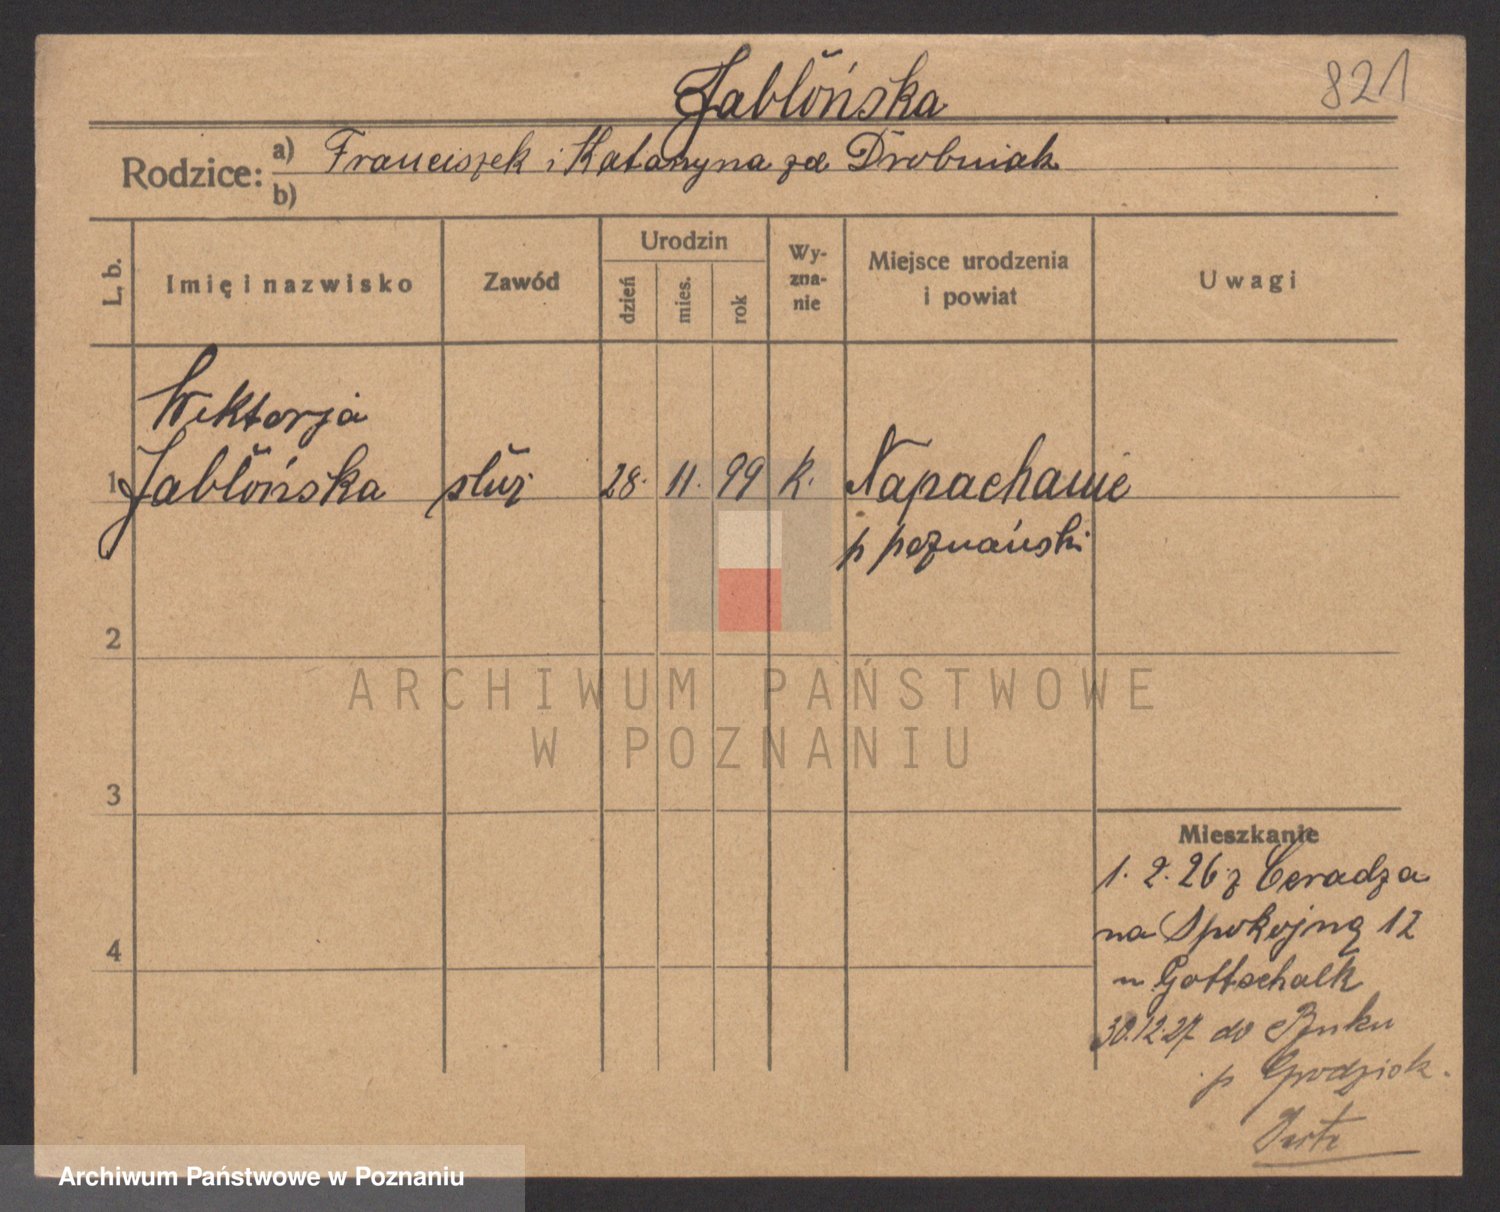 Jabłońska
821
Rodzice: a) Franciszek i Katarzyna zd Drobniak
b)
L. b. Imię i nazwisko Zawód Urodzin dzień mies. rok Wy-zna-nie Miejsce urodzenia i powiat Uwagi
Wiktorja
1 Jabłońska służ 28. 11. 99 k. Napachanie
p poznański
2
ARCHIWUM PAŃSTWOWE
W POZNANIU
3
Mieszkanie
1. 2. 26 z Ceradza
na Spokojną 12
4
u Gottschalk
30.12.27 do Buku
p Grodzisk.
Archiwum Państwowe w Poznaniu